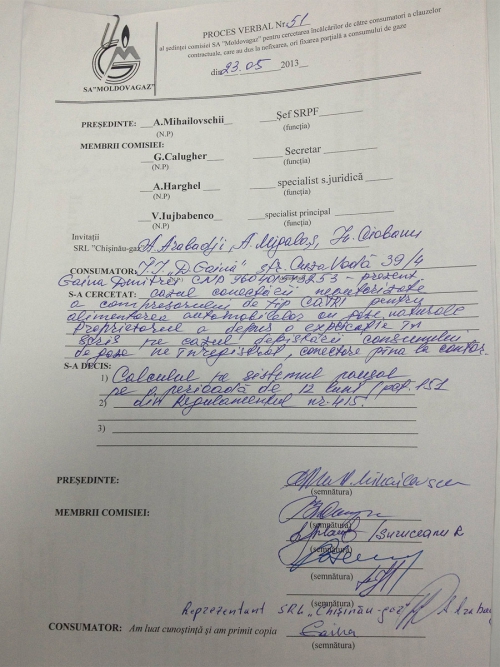 PROCES VERBAL Nr. 51
al şedinţei comisiei SA "Moldovagaz" pentru cercetarea încălcărilor de către consumatori a clauzelor
contractuale, care au dus la nefixarea, ori fixarea parţială a consumului de gaze
din 23.05 2013
SA"MOLDOVAGAZ"
PREŞEDINTE: A.Mihailovschii Şef SRPF
(N.P) (funcţia)
MEMBRII COMISIEI:
G.Calugher Secretar
(N.P) (funcţia)
A.Harghel specialist s.juridică
(N.P) (funcţia)
V.Iujbabenco specialist principal
(N.P) (funcţia)
Invitaţii
SRL "Chişinău-gaz" A. Arabadji, A. Migalaş, Iu. Ciobanu
CONSUMATOR: Î.I. "D. Gaina" str. Cuza Vodă 39/4
Gaina Dmitrii CNP - prezent
S-A CERCETAT: cazul conectării neautorizate
a compresorului de tip CATRI pentru
alimentarea automobilelor cu gaze naturale
Proprietorul a depus o explicaţie în
scris pe cazul depistării consumului
de gaze neînregistrat, conectare pînă la contor.
S-A DECIS:
1) Calculul pe sistemul pauşal
pe o perioadă de 12 luni pct. 151
2) din Regulamentul nr. 415.
3)
PREŞEDINTE: A. Mihailovschii
(semnătura)
MEMBRII COMISIEI:
(semnătura)
Suruceanu R
(semnătura)
(semnătura)
(semnătura)
Reprezentant SRL "Chişinău-gaz"
CONSUMATOR: Am luat cunoştinţă şi am primit copia Gaina
(semnătura)